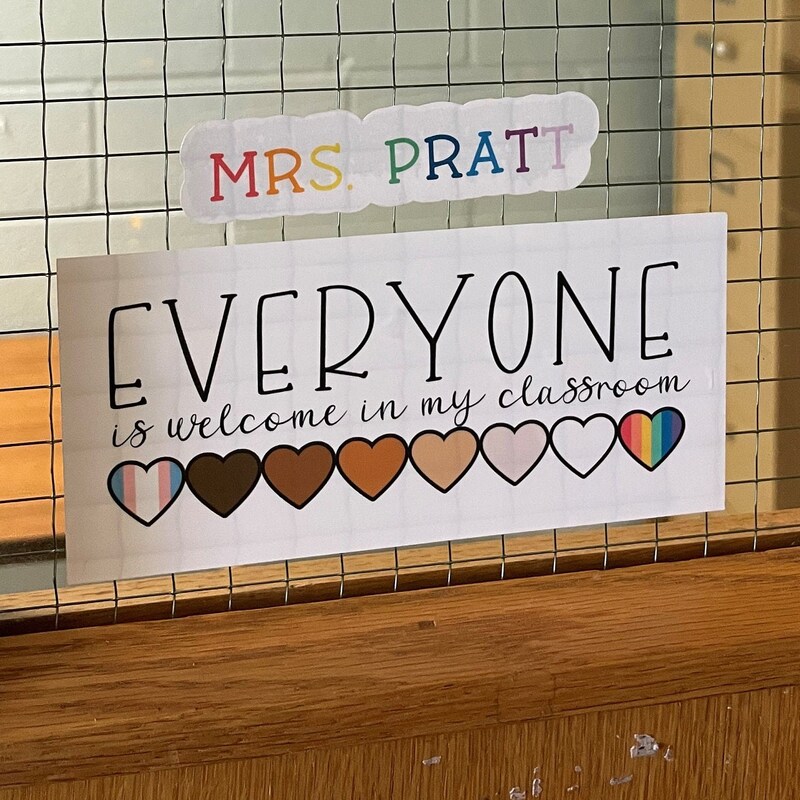 MRS. PRATT
EVERYONE
is welcome in my classroom